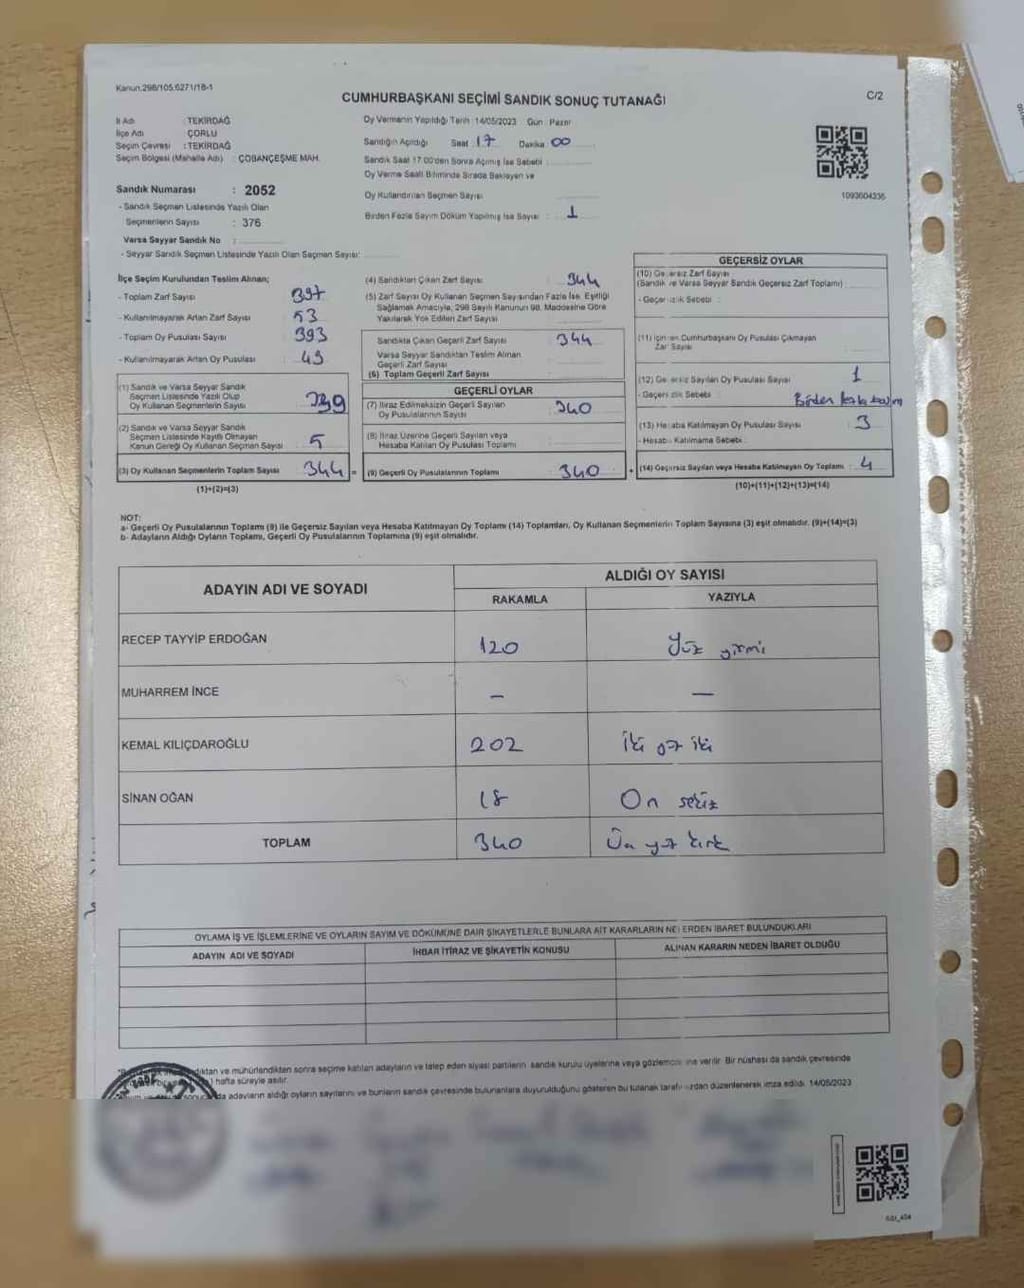 Kanun:298/105,6271/18-1
CUMHURBAŞKANI SEÇİMİ SANDIK SONUÇ TUTANAĞI
C/2
İl Adı : TEKİRDAĞ
İlçe Adı : ÇORLU
Seçim Çevresi : TEKİRDAĞ
Seçim Bölgesi (Mahalle Adı) : ÇOBANÇEŞME MAH.
Sandık Numarası : 2052
- Sandık Seçmen Listesinde Yazılı Olan
Seçmenlerin Sayısı : 376
Varsa Seyyar Sandık No :
- Seyyar Sandık Seçmen Listesinde Yazılı Olan Seçmen Sayısı:
Oy Vermenin Yapıldığı Tarih :14/05/2023 Gün : Pazar
Sandığın Açıldığı Saat 17 Dakika 00
Sandık Saat 17.00'den Sonra Açılmış İse Sebebi :
Oy Verme Saati Bitiminde Sırada Bekleyen ve
Oy Kullandırılan Seçmen Sayısı
Birden Fazla Sayım Döküm Yapılmış İse Sayısı : 1
1093604336
İlçe Seçim Kurulundan Teslim Alınan;
- Toplam Zarf Sayısı : 397
- Kullanılmayarak Artan Zarf Sayısı : 53
- Toplam Oy Pusulası Sayısı : 393
- Kullanılmayarak Artan Oy Pusulası : 49
(1) Sandık ve Varsa Seyyar Sandık
Seçmen Listesinde Yazılı Olup
Oy Kullanan Seçmenlerin Sayısı 339
(2) Sandık ve Varsa Seyyar Sandık
Seçmen Listesinde Kayıtlı Olmayan
Kanun Gereği Oy Kullanan Seçmen Sayısı : 5
(3) Oy Kullanan Seçmenlerin Toplam Sayısı : 344 =
(1)+(2)=(3)
(4) Sandıktan Çıkan Zarf Sayısı : 344
(5) Zarf Sayısı Oy Kullanan Seçmen Sayısından Fazla İse, Eşitliği
Sağlamak Amacıyla, 298 Sayılı Kanunun 98. Maddesine Göre
Yakılarak Yok Edilen Zarf Sayısı
Sandıkta Çıkan Geçerli Zarf Sayısı : 344
Varsa Seyyar Sandıktan Teslim Alınan
Geçerli Zarf Sayısı
(6) Toplam Geçerli Zarf Sayısı
GEÇERLİ OYLAR
(7) İtiraz Edilmeksizin Geçerli Sayılan
Oy Pusulalarının Sayısı : 340
(8) İtiraz Üzerine Geçerli Sayılan veya
Hesaba Katılan Oy Pusulası Toplamı
(9) Geçerli Oy Pusulalarının Toplamı : 340 +
GEÇERSİZ OYLAR
(10) Geçersiz Zarf Sayısı
(Sandık ve Varsa Seyyar Sandık Geçersiz Zarf Toplamı)
- Geçersizlik Sebebi :
(11) İçinden Cumhurbaşkanı Oy Pusulası Çıkmayan
Zarf Sayısı
(12) Geçersiz Sayılan Oy Pusulası Sayısı : 1
- Geçersizlik Sebebi : Birden fazla basım
(13) Hesaba Katılmayan Oy Pusulası Sayısı : 3
- Hesaba Katılmama Sebebi :
(14) Geçersiz Sayılan veya Hesaba Katılmayan Oy Toplamı : 4
(10)+(11)+(12)+(13)=(14)
NOT:
a- Geçerli Oy Pusulalarının Toplamı (9) ile Geçersiz Sayılan veya Hesaba Katılmayan Oy Toplamı (14) Toplamları, Oy Kullanan Seçmenlerin Toplam Sayısına (3) eşit olmalıdır. (9)+(14)=(3)
b- Adayların Aldığı Oyların Toplamı, Geçerli Oy Pusulalarının Toplamına (9) eşit olmalıdır.
ADAYIN ADI VE SOYADI
ALDIĞI OY SAYISI
RAKAMLA YAZIYLA
RECEP TAYYİP ERDOĞAN 120 Yüz yirmi
MUHARREM İNCE – –
KEMAL KILIÇDAROĞLU 202 İki yüz iki
SİNAN OĞAN 18 On sekiz
TOPLAM 340 Üç yüz kırk
OYLAMA İŞ VE İŞLEMLERİNE VE OYLARIN SAYIM VE DÖKÜMÜNE DAİR ŞİKAYETLERLE BUNLARA AİT KARARLARIN NELERDEN İBARET BULUNDUKLARI
ADAYIN ADI VE SOYADI İHBAR İTİRAZ VE ŞİKAYETİN KONUSU ALINAN KARARIN NEDEN İBARET OLDUĞU
dıktan ve mühürlendikten sonra seçime katılan adayların ve talep eden siyasi partilerin sandık kurulu üyelerine veya gözlemcilerine verilir. Bir nüshası da sandık çevresinde
hafta süreyle asılır.
da adayların aldığı oyların sayılarını ve bunların sandık çevresinde bulunanlara duyurulduğunu gösteren bu tutanak tarafımızdan düzenlenerek imza edildi. 14/05/2023